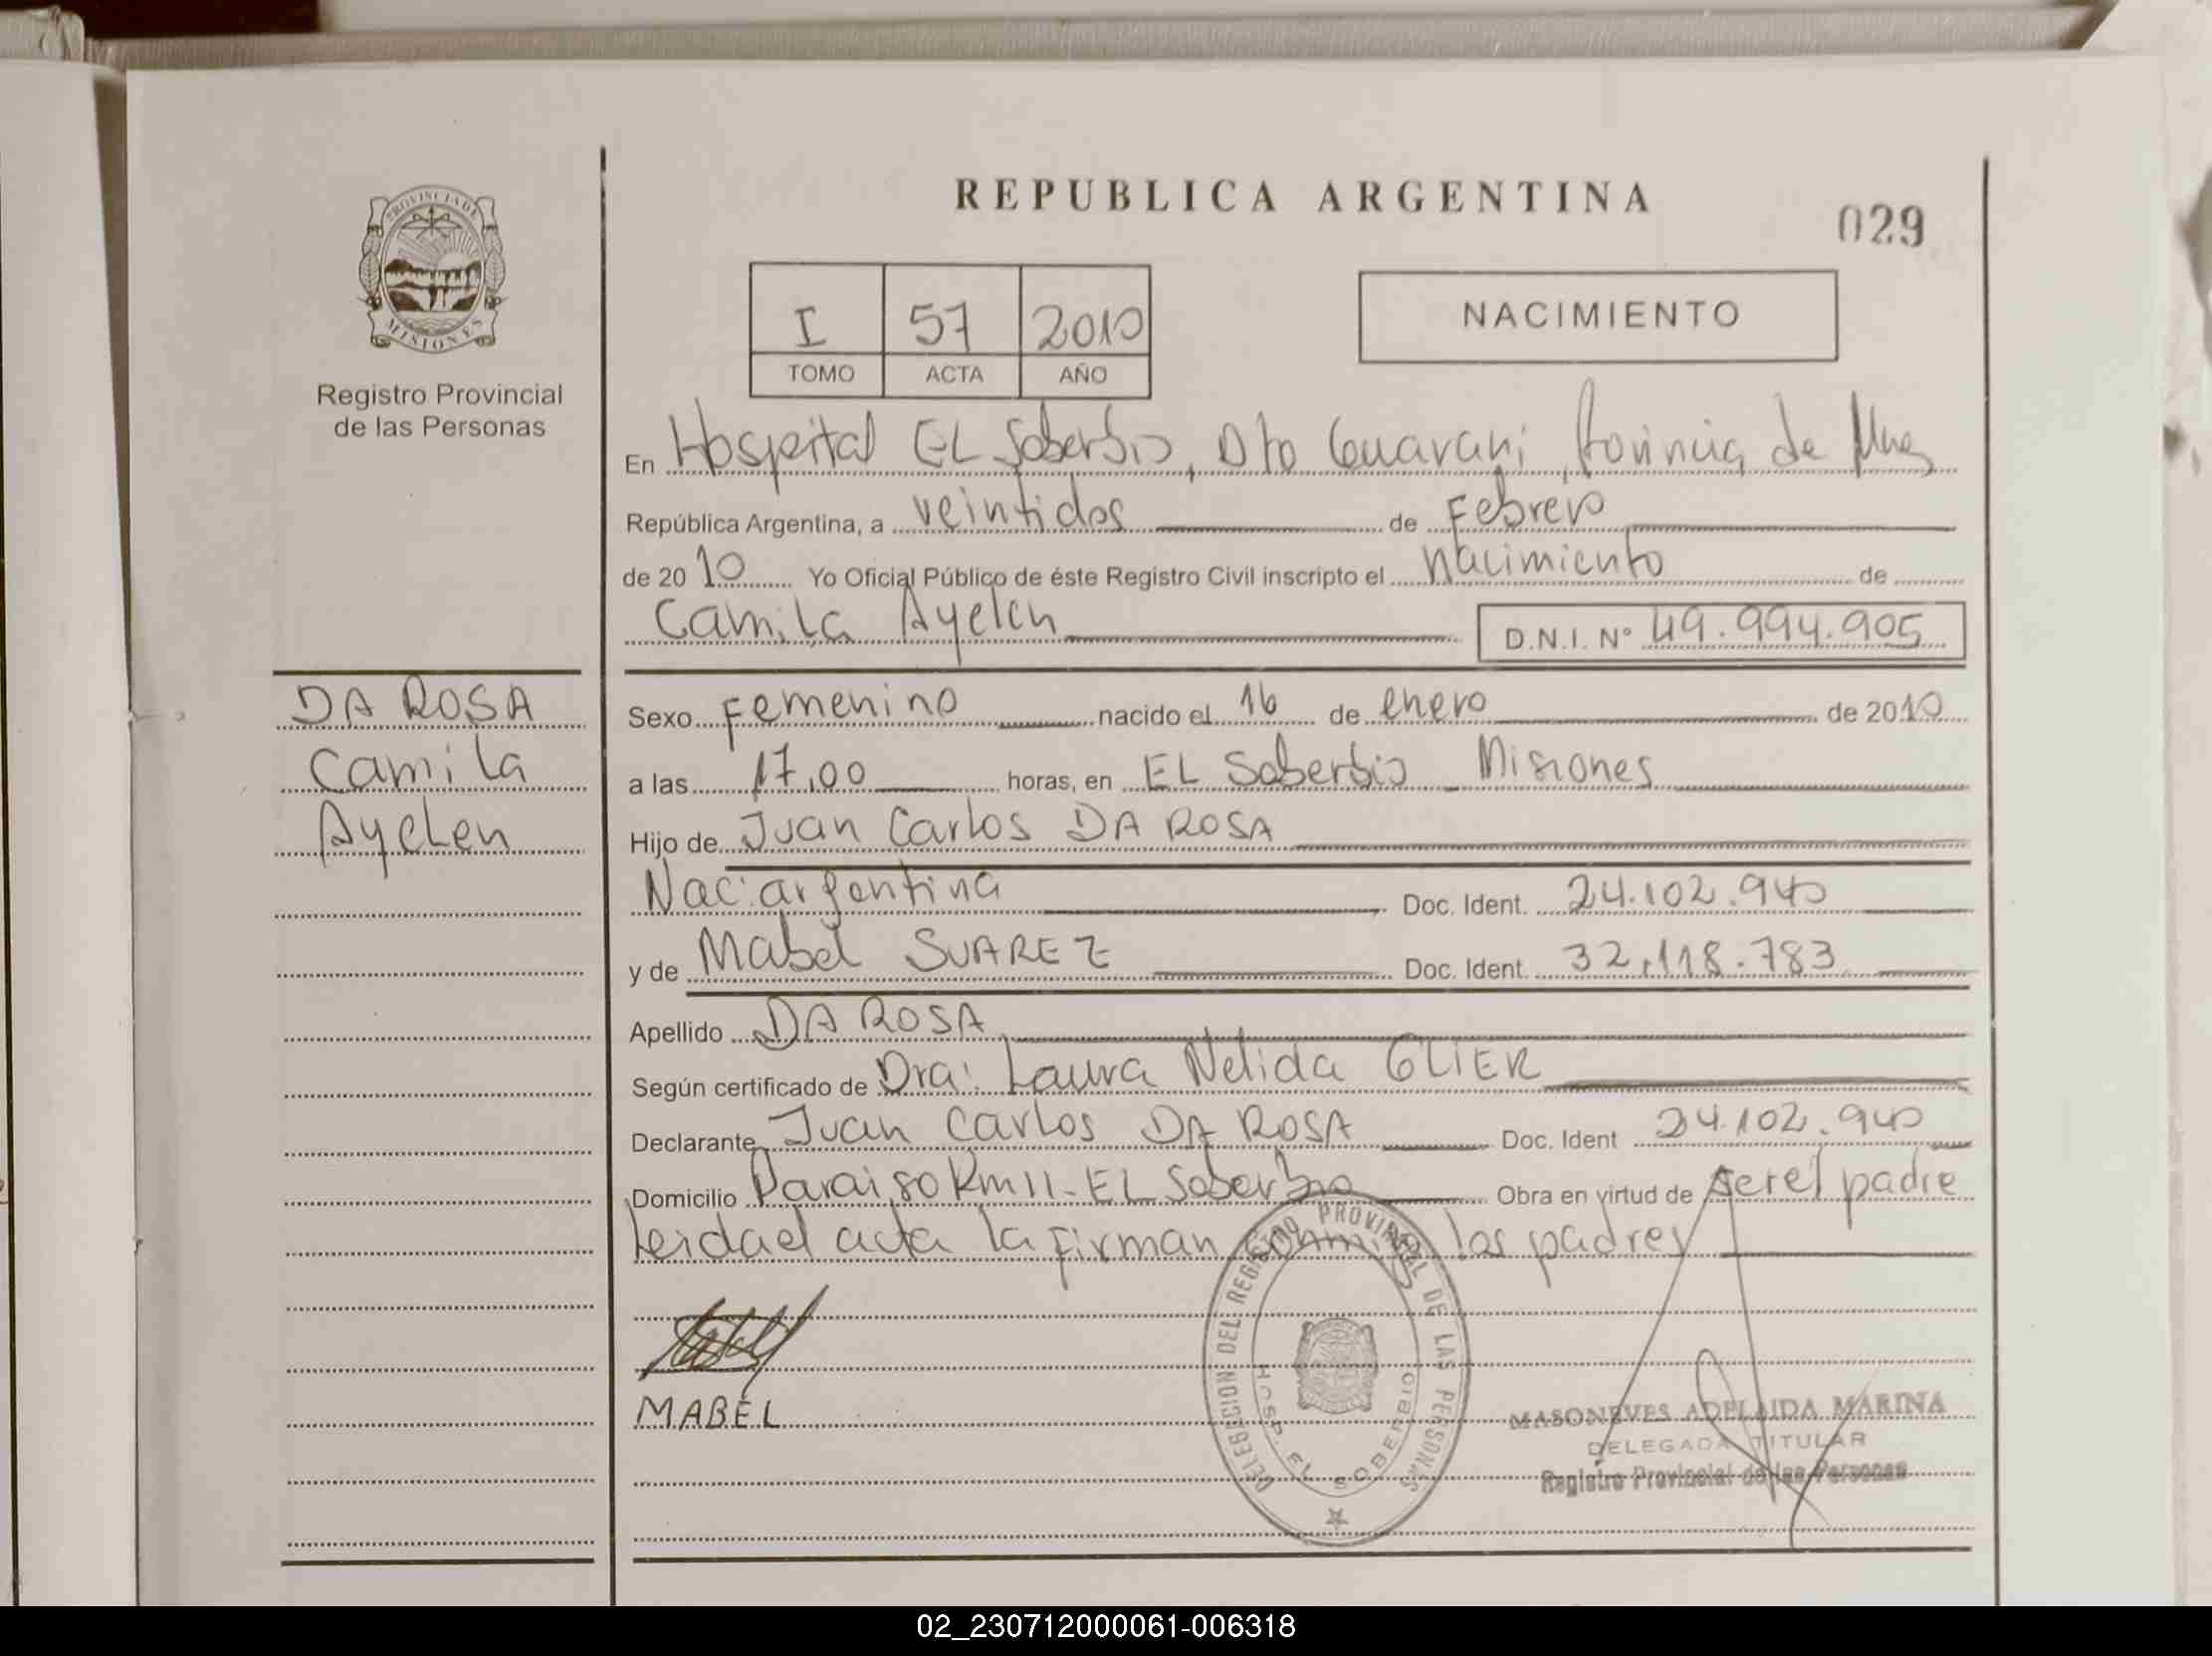 REPUBLICA ARGENTINA
029
PROVINCIA DE
MISIONES
Registro Provincial
de las Personas
I 57 2010
TOMO ACTA AÑO
NACIMIENTO
En Hospital EL Soberbio, Dto Guarani, Provincia de Mnes
República Argentina, a veintidos de Febrero
de 2010 Yo Oficial Público de éste Registro Civil inscripto el Nacimiento de
Camila Ayelen D.N.I. Nº 49.994.905
DA ROSA
Camila
Ayelen
Sexo Femenino nacido el 16 de enero de 2010
a las 17,00 horas, en EL Soberbio Misiones
Hijo de Juan Carlos DA ROSA
Nac: argentina Doc. Ident. 24.102.940
y de Mabel SUAREZ Doc. Ident. 32.118.783
Apellido DA ROSA
Según certificado de Dra: Laura Nelida GLIER
Declarante Juan Carlos DA ROSA Doc. Ident 24.102.940
Domicilio Paraiso Km 11 - EL Soberbio Obra en virtud de ser el padre
Leida el acta la firman conmigo los padres
MABEL
DELEGACION DEL REGISTRO PROVINCIAL DE LAS PERSONAS
HOSP. EL SOBERBIO
MASONEVES ADELAIDA MARINA
DELEGADA TITULAR
Registro Provincial de las Personas
02_230712000061-006318